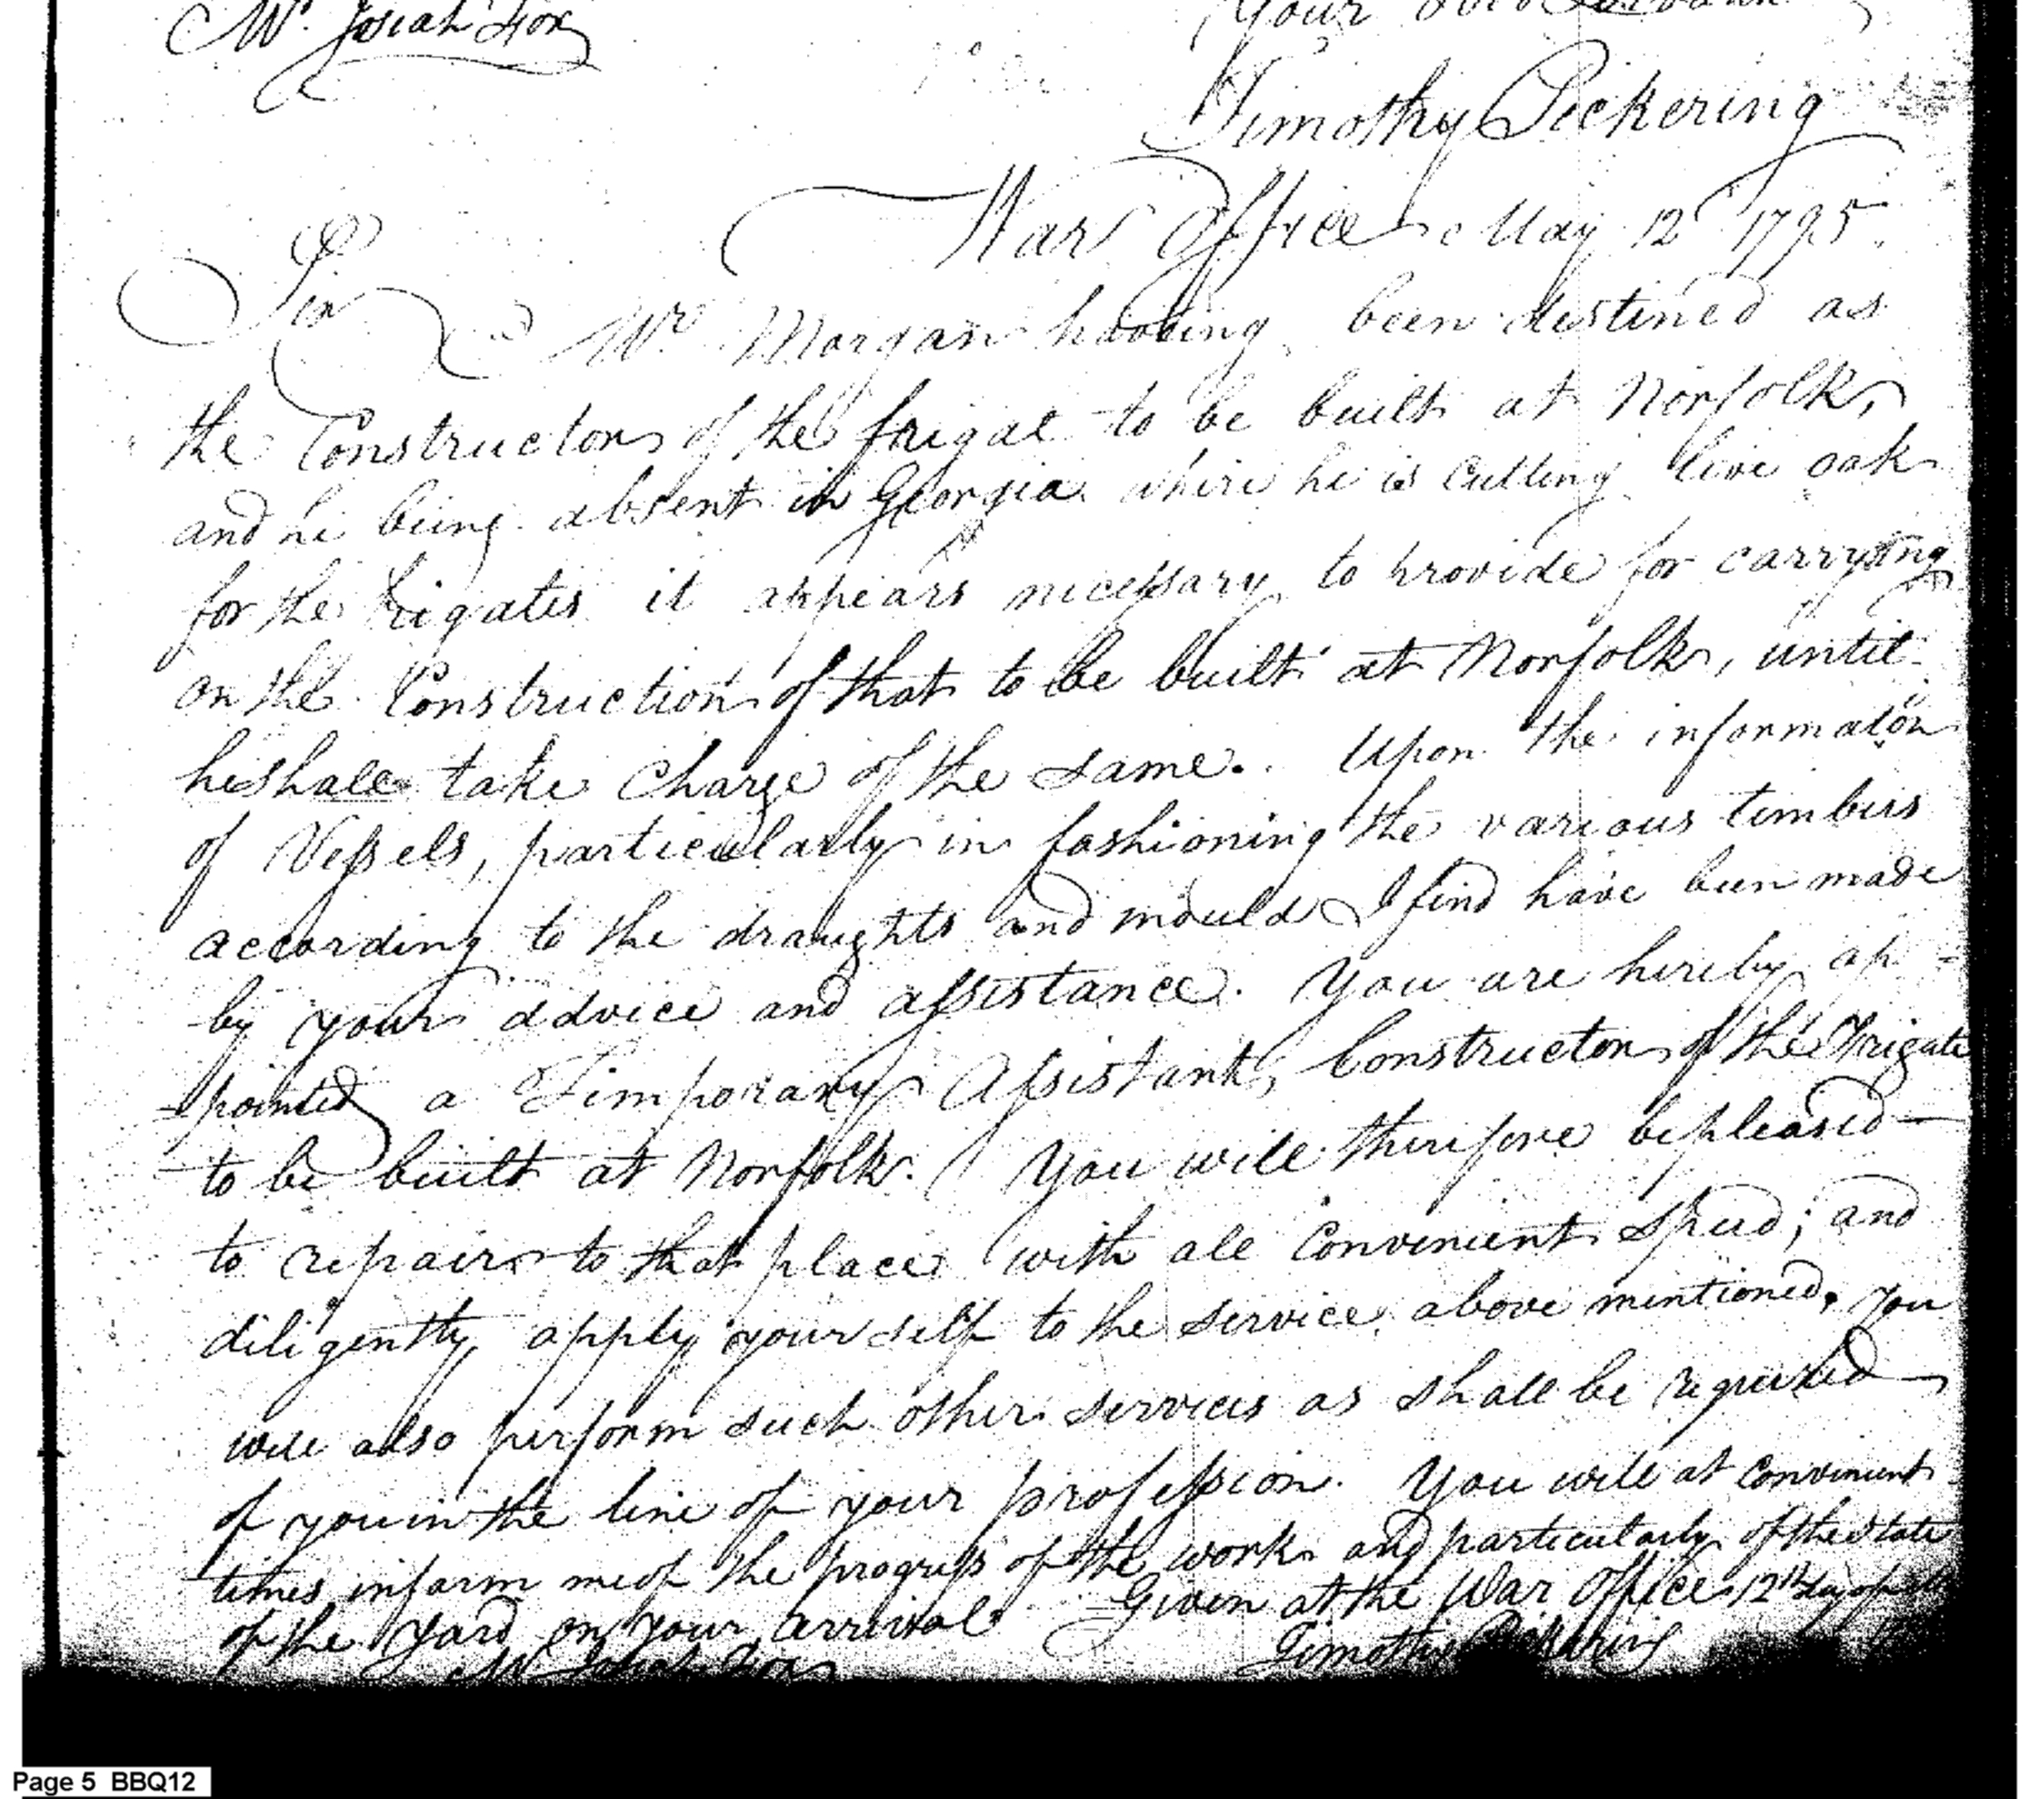 Mr. Josiah Fox
Your
Timothy Pickering
War Office May 12 1795.
Sir
Mr Morgan having been destined as
the Constructor of the frigat to be built at Norfolk,
and he being absent in Georgia where he is Cutting live oak
for the frigates it appears necessary to provide for carrying
on the Construction of that to be built at Norfolk, until
he shall take Charge of the same. Upon the informaton
of Vessels, particularly in fashioning the various timbers
according to the draughts and moulds I find have been made
by your advice and assistance. You are hereby ap=
=pointed a Temporary Assistant, Constructor of the Frigate
to be built at Norfolk. You will therefore be pleased
to repair to that place with all Convenient speed; and
diligently apply yourself to the service above mentioned. You
will also perform such other services as shall be required
of you in the line of your profession. You will at convenient
times inform me of the progress of the work and particularly of the state
of the Yard on your arrival. Given at the War Office 12th day of
Timothy Pickering
Mr Josiah Fox
Page 5 BBQ12